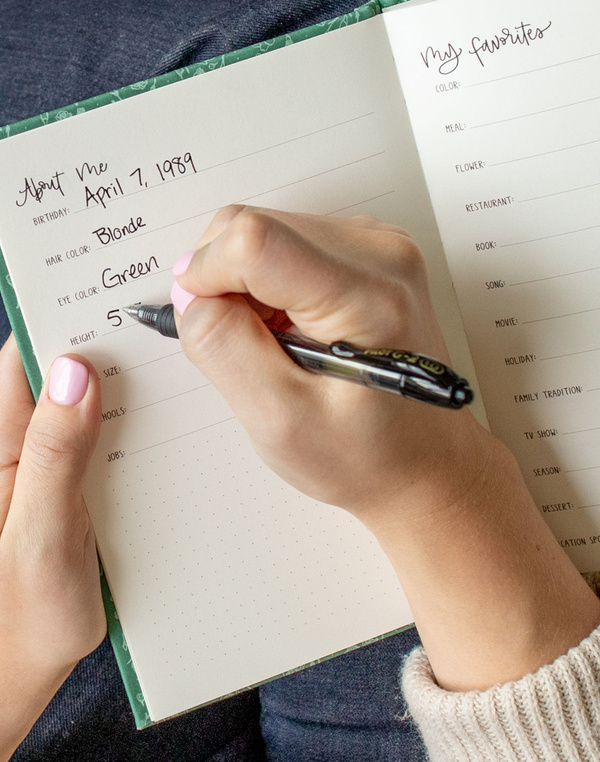 About Me
BIRTHDAY: April 7, 1989
HAIR COLOR: Blonde
EYE COLOR: Green
HEIGHT: 5
SIZE:
JOBS:
my favorites
COLOR:
MEAL:
FLOWER:
RESTAURANT:
BOOK:
SONG:
MOVIE:
HOLIDAY:
FAMILY TRADITION:
TV SHOW:
SEASON:
DESSERT: